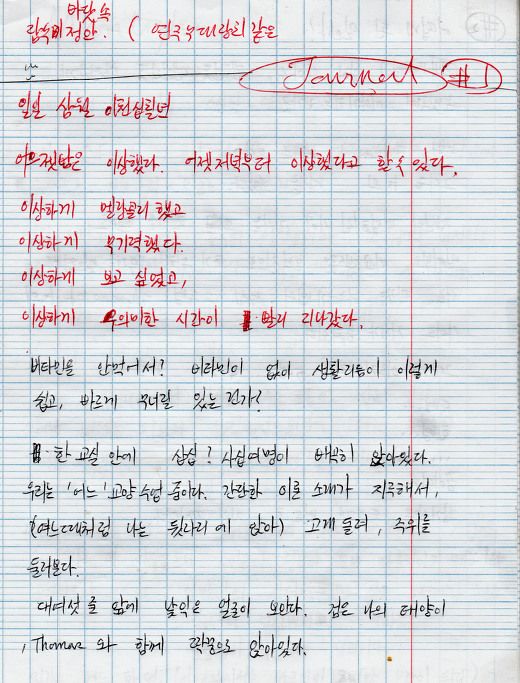 바닷속
람쥐비 정와. ( 연극부대랑희 같은
Journal #1
일일 삼월 이천십칠년
어젯밤은 이상했다. 어젯저녁부터 이상했다고 할 수 있다.
이상하게 멜랑꼴리 했고
이상하게 무기력했다.
이상하게 보고 싶었고,
이상하게 무의미한 시간이 빨리 지나갔다.
비타민을 안먹어서? 비타민이 없이 생활리듬이 이렇게
쉽고, 빠르게 무너질 있는건가?
한 교실 안에 삼십? 사십여명이 빽빽히 앉아있다.
우리는 '어느' 교양 수업 중이다. 간단한 이론 소개가 지루해서,
(여느때처럼 나는 뒷자리에 앉아) 고개 돌려, 주위를
둘러본다.
대여섯줄 앞에 낯익은 얼굴이 보인다. 검은 나의 태양이
, Thomas 와 함께 짝꿍으로 앉아있다.